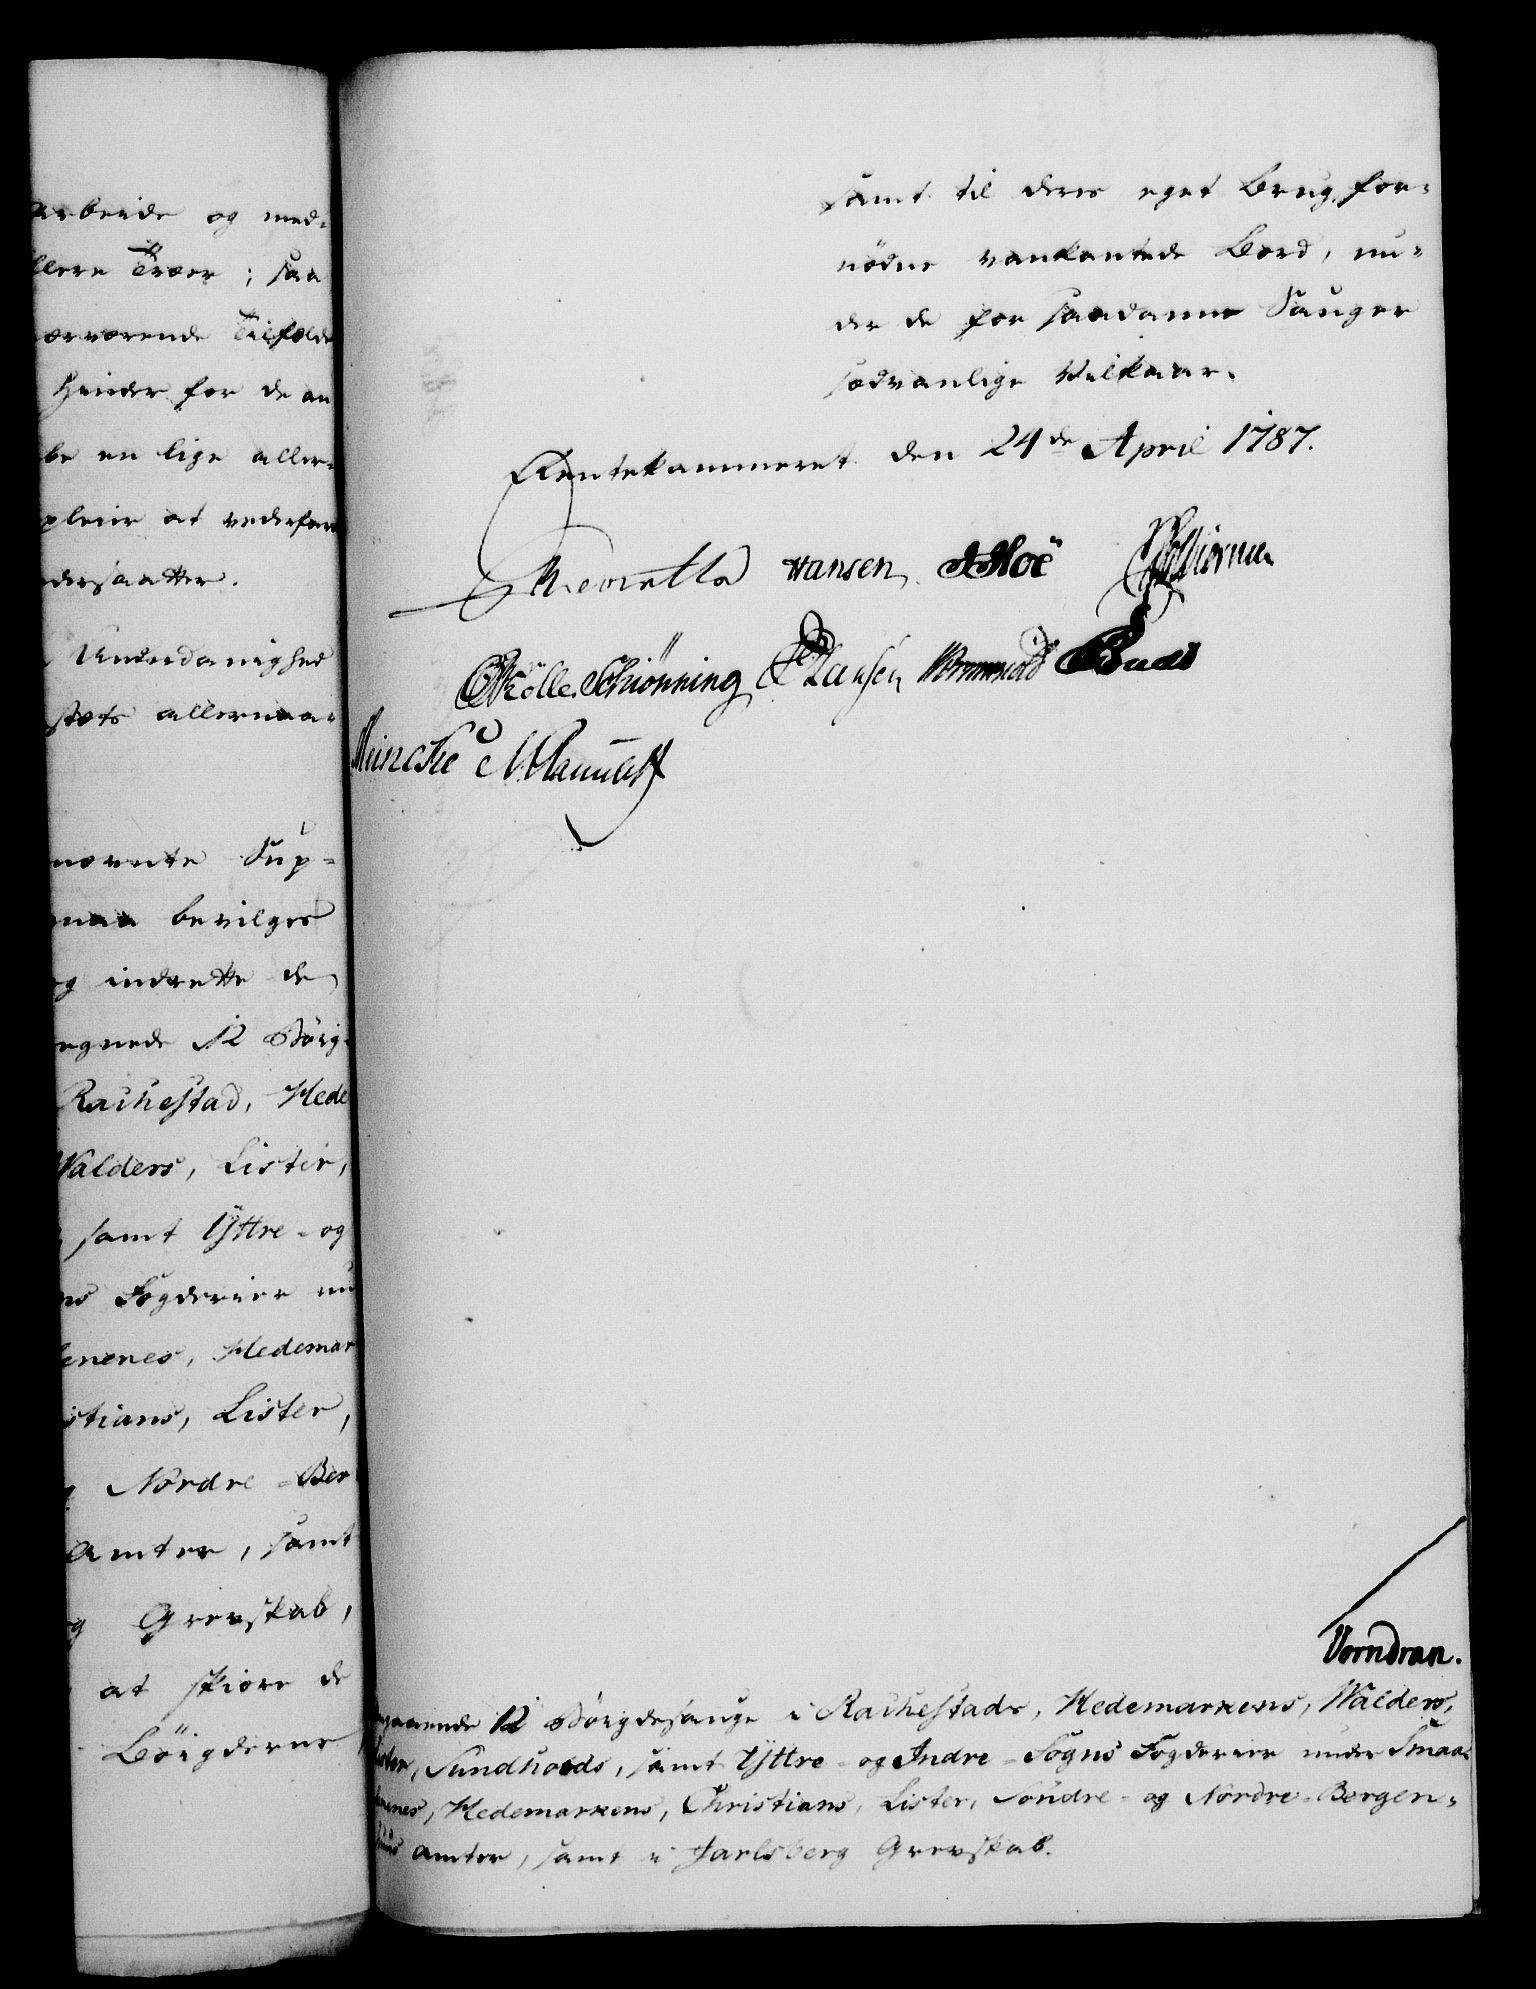 arbeide og med-
llere Træer; saa
ærværende Tilfælde
Hinder for de an
be en lige aller-
pleie at vederfare
dersaatter.
Underdanighed
stets allernaa-
nævnte Sup-
maa bevilges
og indrette de
egnede 12 Böig-
Rachestad, Hede
Walders, Lister,
samt Yttre- og
ns Fogderier un
lenenes, Hedemar
istians, Lister,
Nordre-Ber
Amter, samt
g Grevskab,
at skiære de
Böigderne
samt til deres eget Brug for-
nödne vankantede Bord, un-
der de for saadanne Sauger
sædvanlige Vilkaar.
Rentekammeret den 24de April 1787.
Hansen
Schiönning Hansen Wormskiold
Müncke
Vorndran.
gaaende 12 Böigdesauge i Rachestads, Hedemarkens, Walders,
Lister, Sundhords, samt Yttre- og Indre-Sogns Fogderier under Smaa-
lenenes, Hedemarkens, Christians, Lister, Söndre- og Nordre-Bergen-
huus Amter, samt i Jarlsberg Grevskab.